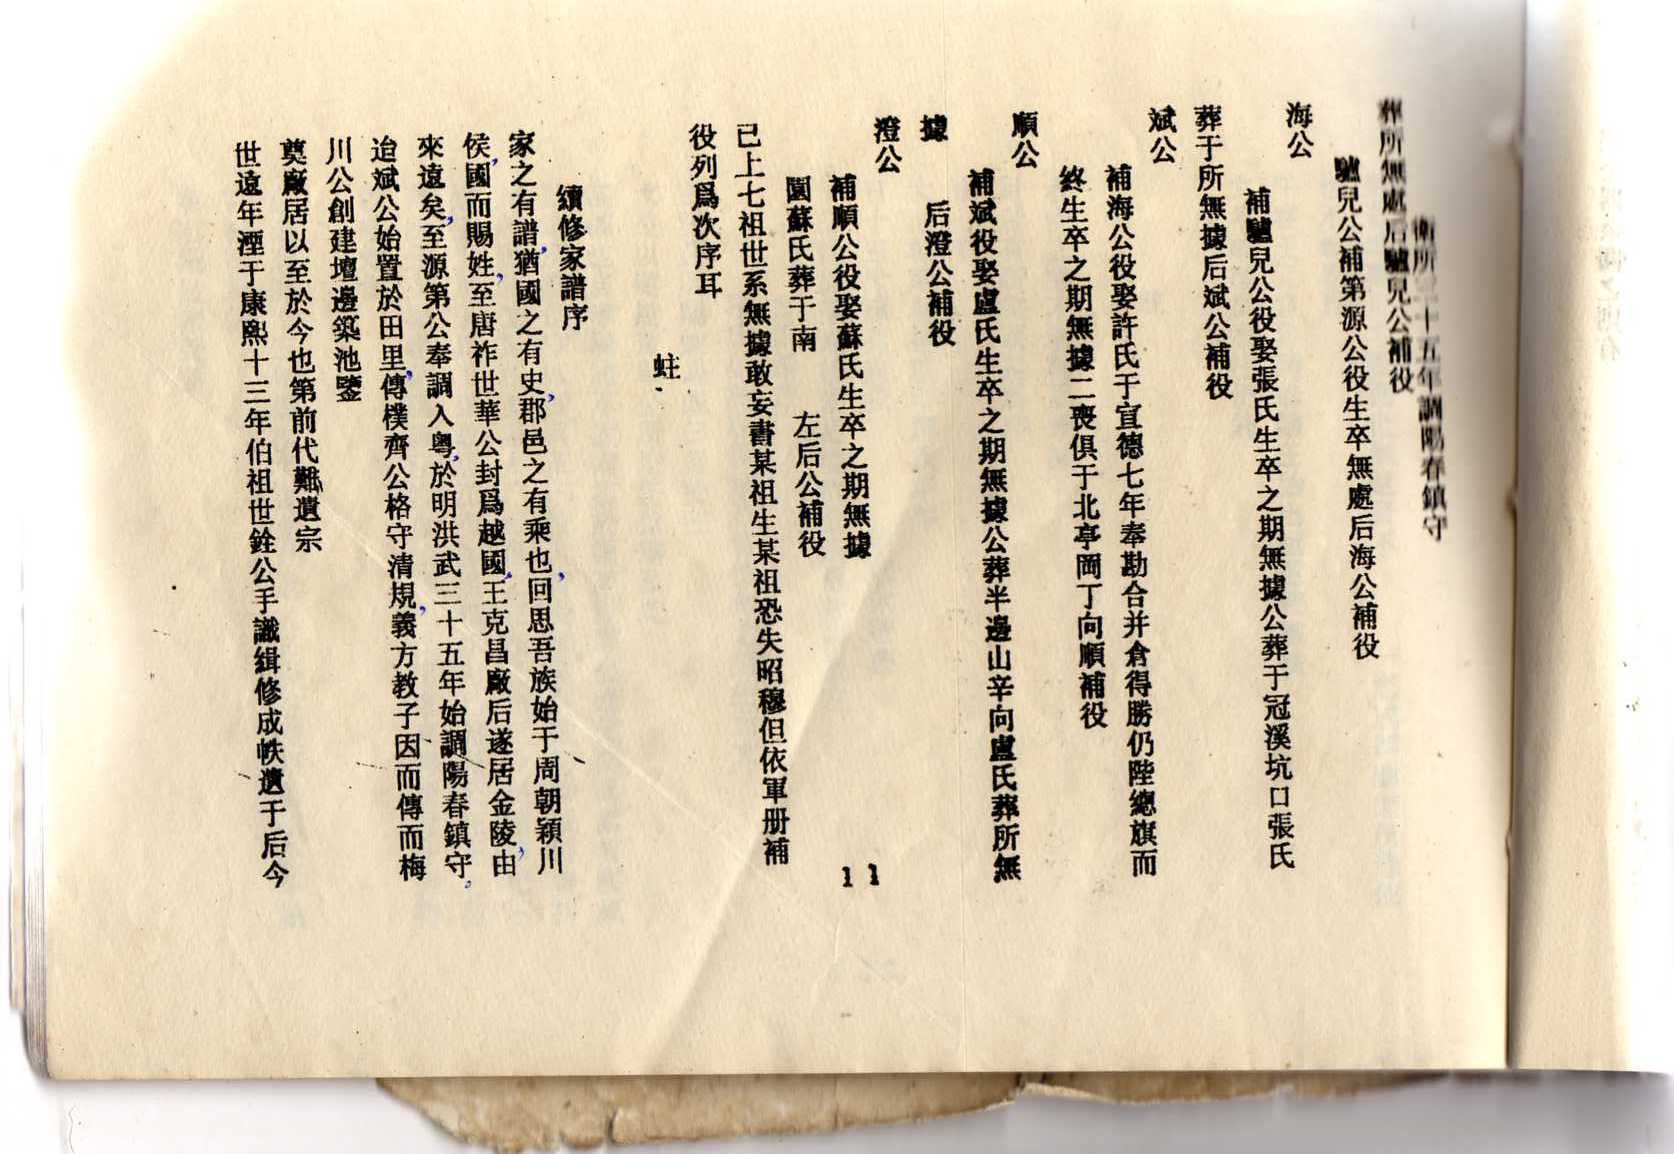 衞所三十五年調陽春鎮守
葬所無處后驢兒公補役
驢兒公補第源公役生卒無處后海公補役
海公
補驢兒公役娶張氏生卒之期無據公葬于冠溪坑口張氏
葬于所無據后斌公補役
斌公
補海公役娶許氏于宣德七年奉勘合并倉得勝仍陞總旗而
終生卒之期無據二喪俱于北亭岡丁向順補役
順公
補斌役娶盧氏生卒之期無據公葬半邊山辛向盧氏葬所無
據　后澄公補役
澄公
補順公役娶蘇氏生卒之期無據
園蘇氏葬于南　左后公補役
已上七祖世系無據敢妄書某祖生某祖恐失昭穆但依軍册補
役列爲次序耳
蛀
續修家譜序
家之有譜，猶國之有史，郡邑之有乘也，回思吾族始于周朝潁川
侯，國而賜姓，至唐祚世華公封爲越國，王克昌廠后遂居金陵，由
來遠矣，至源第公奉調入粤，於明洪武三十五年始調陽春鎮守。
迨斌公始置於田里，傳樸齊公格守清規，義方教子因而傳而梅
川公創建壇邊築池鑒
奠廠居以至於今也第前代難遺宗
世遠年湮于康熙十三年伯祖世銓公手識緝修成帙遺于后今
11